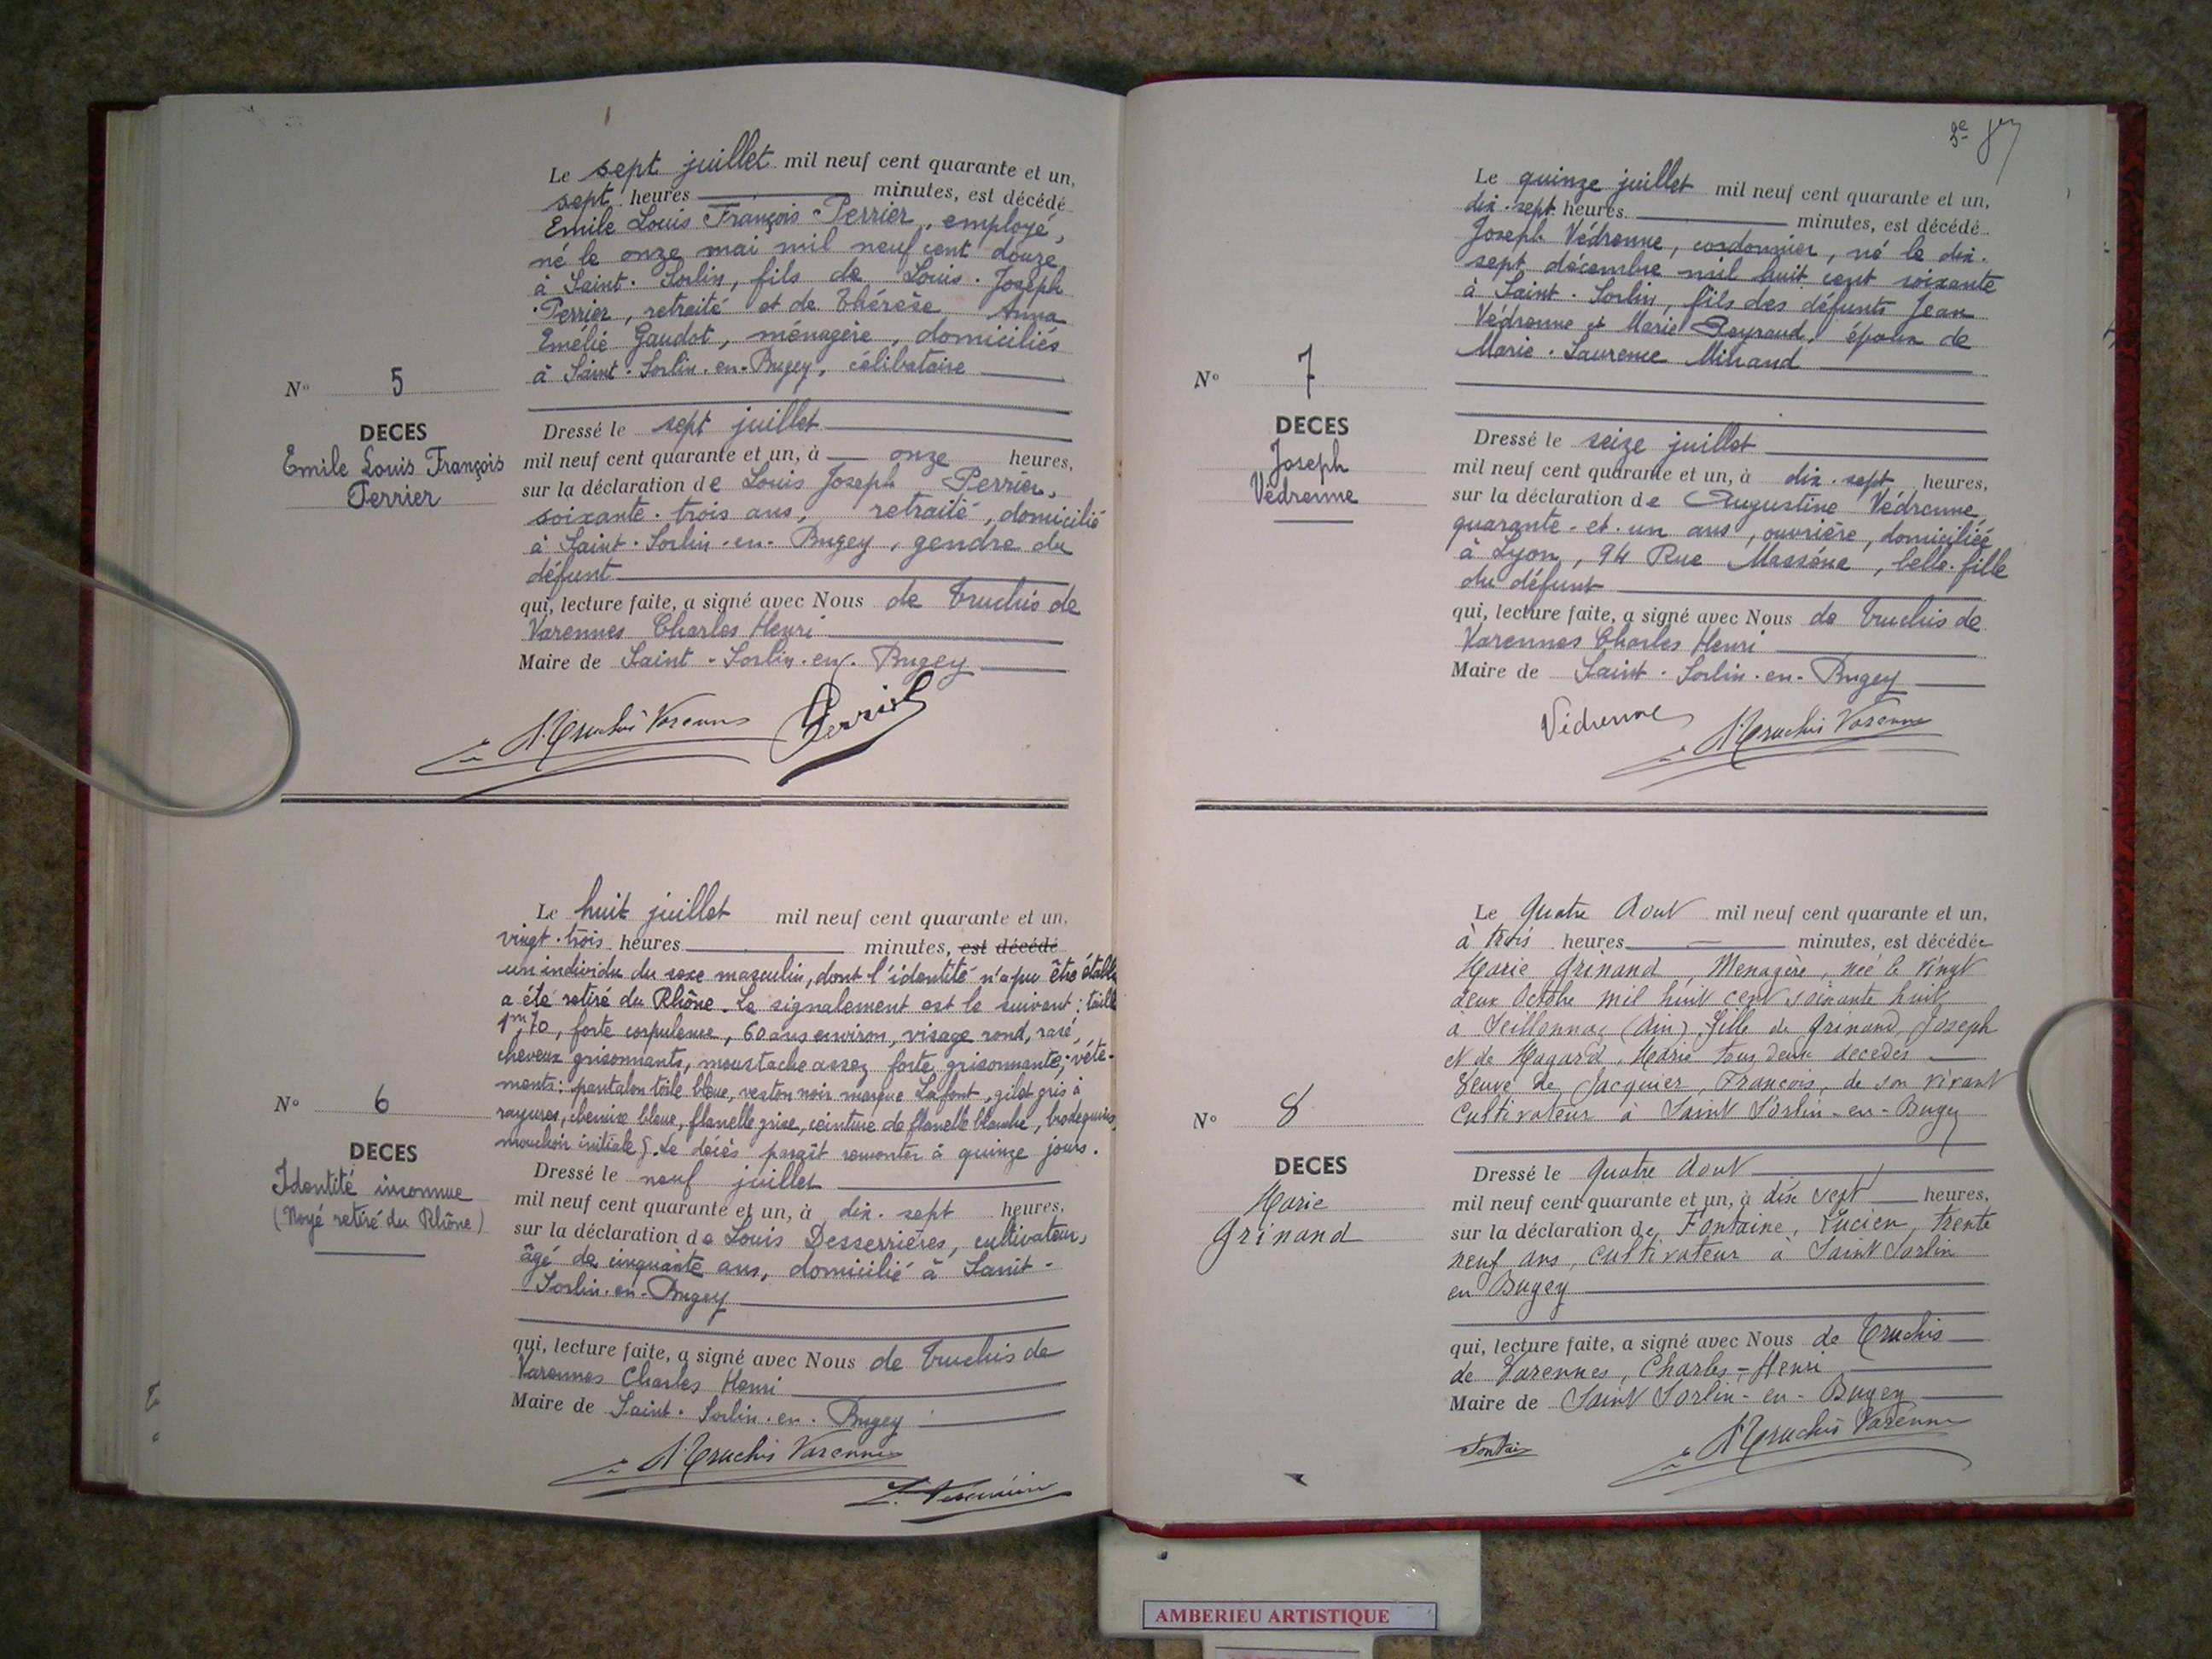 Le sept juillet mil neuf cent quarante et un,
sept heures minutes, est décédé
Emile Louis François Perrier, employé,
né le onze mai mil neuf cent douze
à Saint-Sorlin, fils de Louis-Joseph
Perrier, retraité et de Thérèse Anna
Emélie Gaudot, ménagère, domiciliés
à Saint-Sorlin-en-Bugey, célibataire
N° 5
DECES
Emile Louis François
Perrier
Dressé le sept juillet
mil neuf cent quarante et un, à onze heures,
sur la déclaration de Louis Joseph Perrier,
soixante-trois ans, retraité, domicilié
à Saint-Sorlin-en-Bugey, gendre du
défunt
qui, lecture faite, a signé avec Nous de Truchis de
Varennes Charles Henri
Maire de Saint-Sorlin-en-Bugey
Perrier
Le huit juillet mil neuf cent quarante et un,
vingt-trois heures minutes, est décédé
un individu du sexe masculin, dont l'identité n'a pu être établie
a été retiré du Rhône. Le signalement est le suivant: taille
1m,70, forte corpulence, 60 ans environ, visage rond, rasé,
cheveux grisonnants, moustache assez forte grisonnante; vête-
ments: pantalon toile bleue, veston noir marque Lafont, gilet gris à
rayures, chemise bleue, flanelle grise, ceinture de flanelle blanche, brodequins,
mouchoir initiale. Le décès paraît remonter à quinze jours.
N° 6
DECES
Identité inconnue
(Noyé retiré du Rhône)
Dressé le neuf juillet
mil neuf cent quarante et un, à dix-sept heures,
sur la déclaration de Louis Desserrières, cultivateur,
âgé de cinquante ans, domicilié à Saint-
Sorlin-en-Bugey
qui, lecture faite, a signé avec Nous de Truchis de
Varennes Charles Henri
Maire de Saint-Sorlin-en-Bugey
Le quinze juillet mil neuf cent quarante et un,
dix-sept heures minutes, est décédé
Joseph Védrenne, cordonnier, né le dix-
sept décembre mil huit cent soixante
à Saint-Sorlin, fils des défunts Jean
Védrenne et Marie Peyraud, époux de
Marie-Laurence
N° 7
DECES
Joseph
Védrenne
Dressé le seize juillet
mil neuf cent quarante et un, à dix-sept heures,
sur la déclaration de Augustine Védrenne
quarante-et-un ans, ouvrière, domiciliée
à Lyon, 94 Rue Masséna, belle-fille
du défunt
qui, lecture faite, a signé avec Nous de Truchis de
Varennes Charles Henri
Maire de Saint-Sorlin-en-Bugey
Védrenne
Le quatre Aout mil neuf cent quarante et un,
à trois heures minutes, est décédée
Marie Grinand, Menagère, née le vingt
deux Octobre mil huit cent soixante huit
à Seillonnaz (Ain), fille de Grinand, Joseph
et de Magard, Marie tous deux decedes
Veuve de Jacquier, François, de son vivant
Cultivateur à Saint Sorlin-en-Bugey
N° 8
DECES
Marie
Grinand
Dressé le quatre Aout
mil neuf cent quarante et un, à dix sept heures,
sur la déclaration de Fontaine, Lucien, trente
neuf ans, cultivateur à Saint Sorlin
en Bugey
qui, lecture faite, a signé avec Nous de Truchis
de Varennes, Charles-Henri
Maire de Saint Sorlin-en-Bugey
AMBERIEU ARTISTIQUE